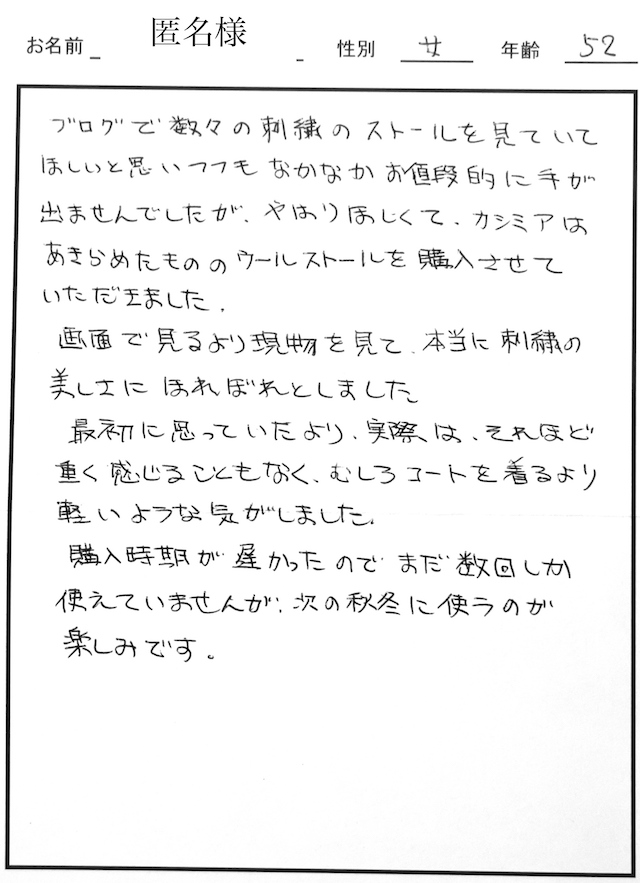 お名前 匿名様 性別 女 年齢 52
ブログで数々の刺繍のストールを見ていて
ほしいと思いつつもなかなかお値段的に手が
出ませんでしたが、やはりほしくて、カシミアは
あきらめたもののウールストールを購入させて
いただきました。
画面で見るより現物を見て、本当に刺繍の
美しさにほれぼれとしました。
最初に思っていたより、実際は、それほど
重く感じることもなく、むしろコートを着るより
軽いような気がしました。
購入時期が遅かったのでまだ数回しか
使えていませんが、次の秋冬に使うのが
楽しみです。